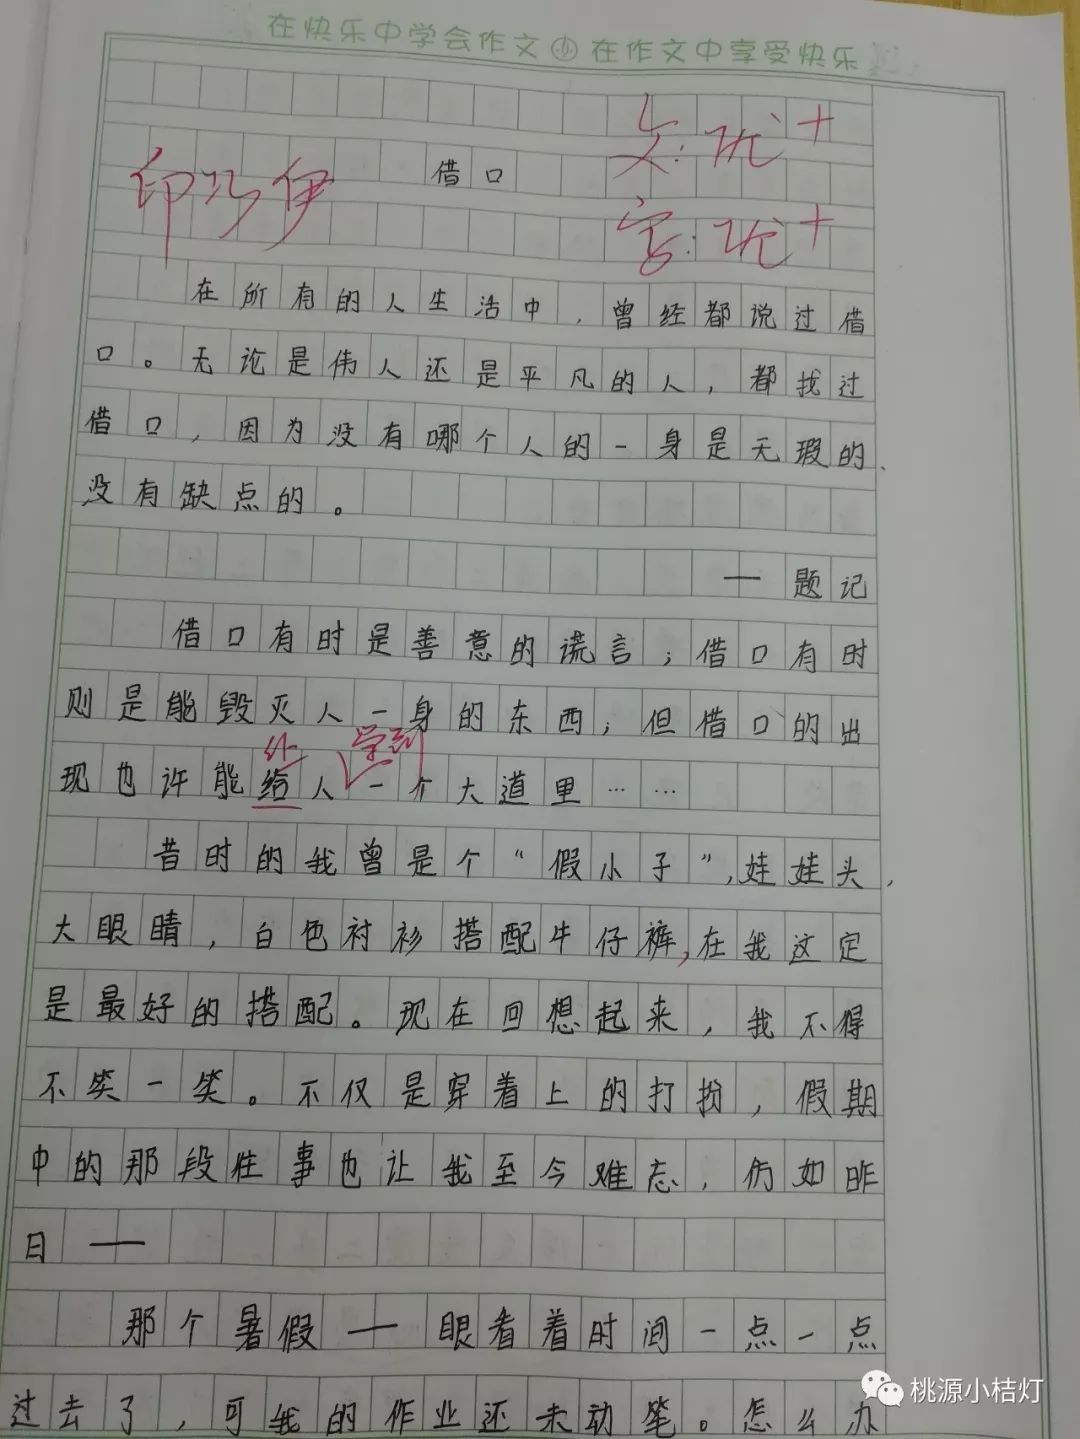 在快乐中学会作文 在作文中享受快乐
文:优+
印巧伊
借口
字:优+
在所有的人生活中，曾经都说过借
口。无论是伟人还是平凡的人，都找过
借口，因为没有哪个人的一身是无瑕的、
没有缺点的。
——题记
借口有时是善意的谎言；借口有时
则是能毁灭人一身的东西；但借口的出
让 学到
现也许能给人一个大道里……
昔时的我曾是个“假小子”,娃娃头，
大眼睛，白色衬衫搭配牛仔裤,在我这定
是最好的搭配。现在回想起来，我不得
不笑一笑。不仅是穿着上的打扮，假期
中的那段往事也让我至今难忘，仿如昨
日——
那个暑假——眼看着时间一点一点
过去了，可我的作业还未动笔。怎么办
桃源小桔灯